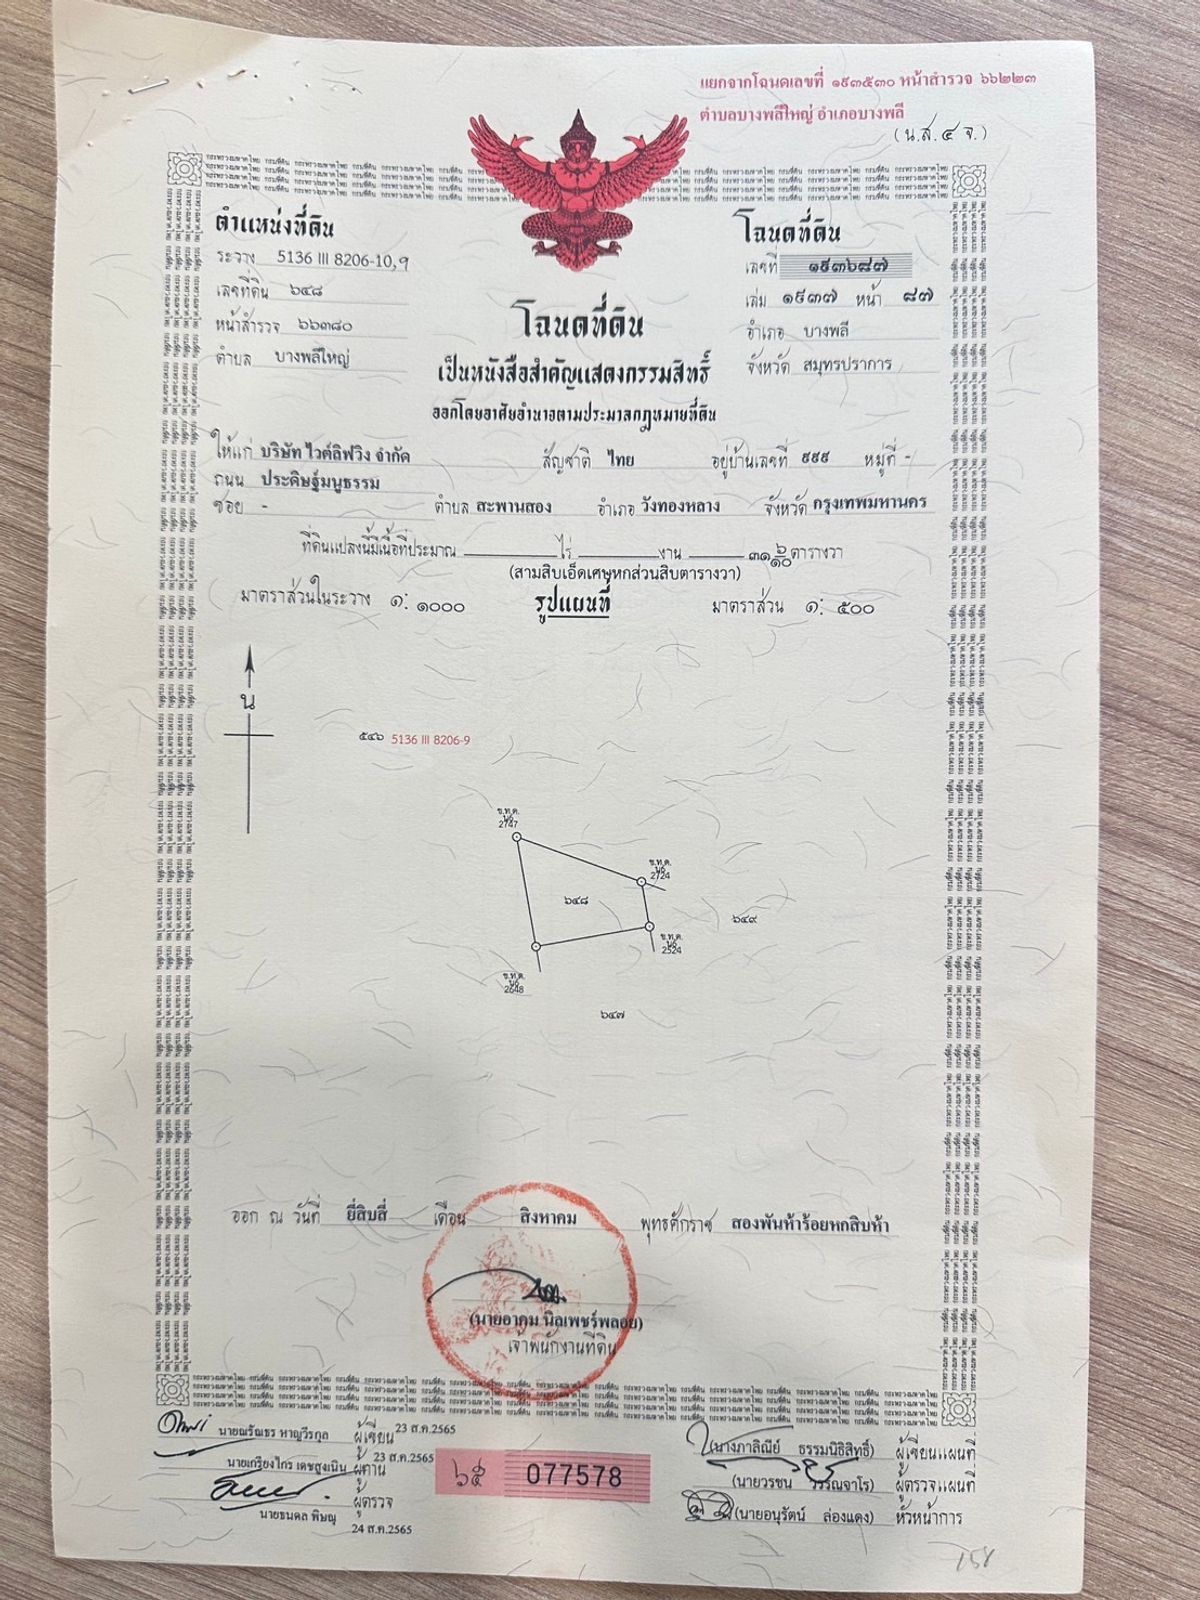 แยกจากโฉนดเลขที่ ๑๙๓๕๓๐ หน้าสำรวจ ๖๖๒๒๓
ตำบลบางพลีใหญ่ อำเภอบางพลี
(น.ส.๔ จ.)
ตำแหน่งที่ดิน
ระวาง 5136 III 8206-10,๙
เลขที่ดิน ๖๔๘
หน้าสำรวจ ๖๖๓๘๐
ตำบล บางพลีใหญ่
โฉนดที่ดิน
เลขที่ ๑๙๓๖๘๗
เล่ม ๑๙๓๗ หน้า ๘๗
อำเภอ บางพลี
จังหวัด สมุทรปราการ
โฉนดที่ดิน
เป็นหนังสือสำคัญแสดงกรรมสิทธิ์
ออกโดยอาศัยอำนาจตามประมวลกฎหมายที่ดิน
ให้แก่ บริษัท ไวต์ลิฟวิง จำกัด สัญชาติ ไทย อยู่บ้านเลขที่ ๙๙๙ หมู่ที่ -
ถนน ประดิษฐ์มนูธรรม
ซอย - ตำบล สะพานสอง อำเภอ วังทองหลาง จังหวัด กรุงเทพมหานคร
ที่ดินแปลงนี้มีเนื้อที่ประมาณ ไร่ งาน ๓๑ ๖/๑๐ ตารางวา
(สามสิบเอ็ดเศษหกส่วนสิบตารางวา)
มาตราส่วนในระวาง ๑: ๑๐๐๐ รูปแผนที่ มาตราส่วน ๑: ๕๐๐
น
๕๔๖ 5136 III 8206-9
ข.ท.ด.
น6
2747
ข.ท.ด.
น6
2724
๖๔๘
๖๔๙
ข.ท.ด.
น6
2524
ข.ท.ด.
น6
2648
๖๔๗
ออก ณ วันที่ ยี่สิบสี่ เดือน สิงหาคม พุทธศักราช สองพันห้าร้อยหกสิบห้า
(นายอาคม นิลเพชร์พลอย)
เจ้าพนักงานที่ดิน
นายณรัณธร หาญวีรกุล ผู้เขียน 23 ส.ค.2565
นายเกรียงไกร เดชสูงเนิน ผู้ทาน 23 ส.ค.2565
ผู้ตรวจ
นายธนดล พิษณุ
24 ส.ค.2565
๖๕ 077578
(นางภาลิณีย์ ธรรมนิธิสิทธิ์) ผู้เขียนแผนที่
(นายวรชน วรรณจาโร) ผู้ตรวจแผนที่
(นายอนุรัตน์ ล่องแดง) หัวหน้าการ
158